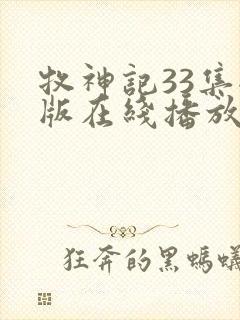 牧神記33集
版在綫播放
狂奔的黑螞蟻